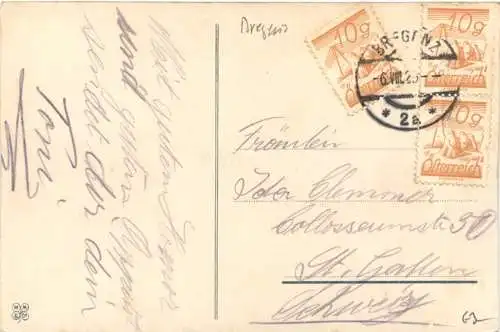 Bregenz
10g
Österreich
10g
Österreich
10g
Österreich
BREGENZ
-6.VIII.25-
* 2a *
Viel guten Humor
und guten Appetit
sendet dir dein
Toni
Fräulein
Ida Clemenz
Collosseumstr 30
St. Gallen
Schweiz